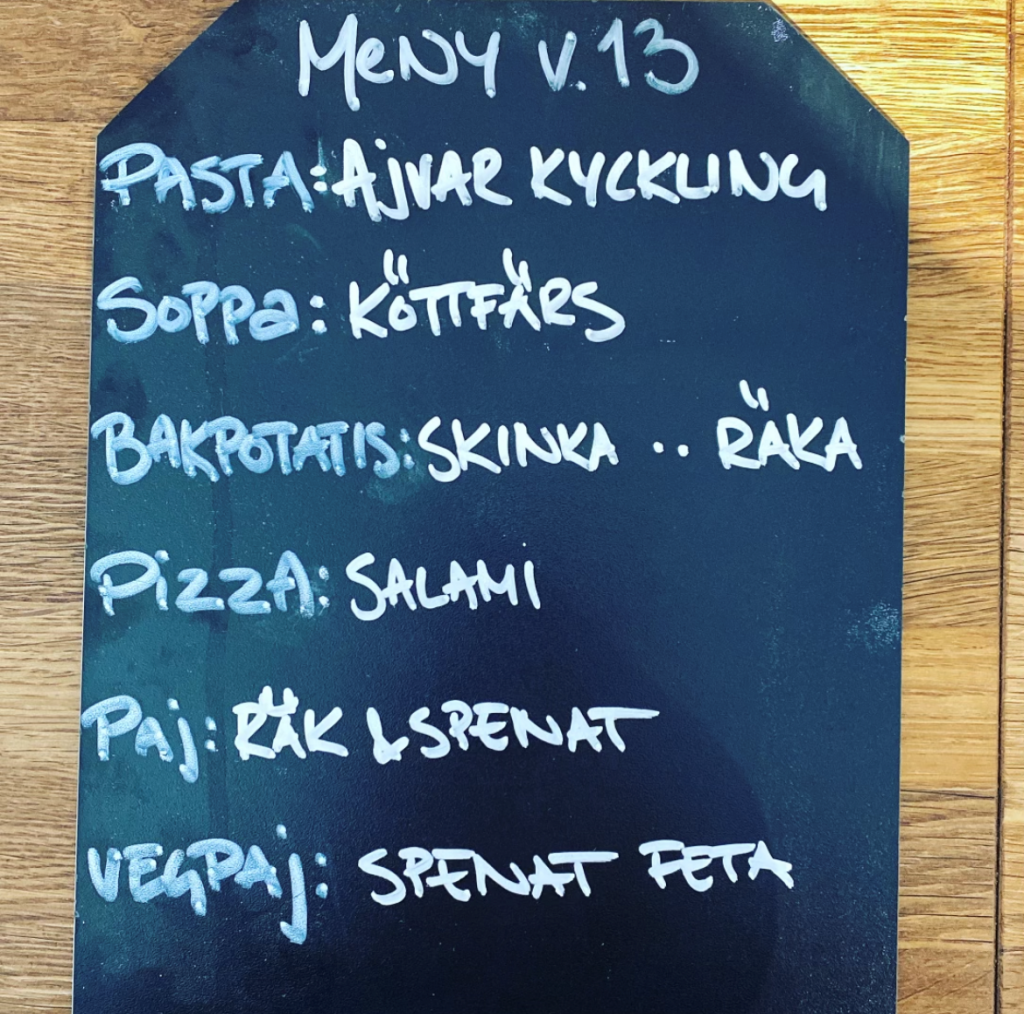 MeNY v.13
PASTA: AjVAR KYCKLING
Soppa: KÖTTFÄRS
BAKPOTATIS: SKINKA .. RÄKA
PizzA: SALAMi
Paj: RÄK & SPENAT
VEGPAj: SPENAT FETA